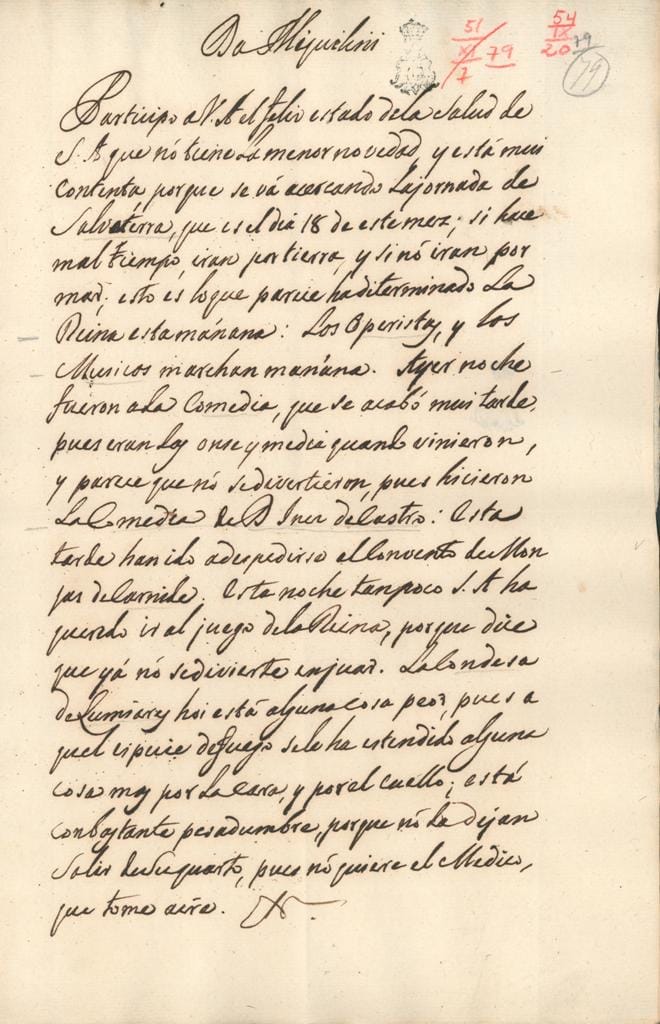 Da Miguelini
51
XI
7
79
54
IX
20
79
79
Participo a V. A el feliz estado dela Salud de
S. A que nó tiene la menor novedad, y está mui
Contenta, porque se vá acercando La jornada de
Salvaterra, que es el dia 18 de este mez; si hace
mal tiempo, iran por tierra, y si nó iran por
mar; esto es loque parece ha diterminado La
Reina esta mañana: Los Operistas, y los
Musicos marchan mañana. Ayer noche
fueron ala Comedia, que se acabó mui tarde,
pues eran las onse y media quando vinieron,
y parece que nó se divertieron, pues hicieron
La Comedia de D Ines de Castro: Esta
tarde han ido a despedirse al Convento de Mon
jas de Carnide. Esta noche tampoco S. A ha
querido ir al juego dela Reina, porque dice
que yá nó se divierte en jugar. La Condesa
de Lumiares hoi está alguna cosa peor, pues a
quel especie de fuego sele ha estendido alguna
cosa mas por La Cara, y por el cuello; está
con bastante pesadumbre, porque nó La dejan
Salir de Su quarto, pues nó quiere el Medico,
que tome aire.